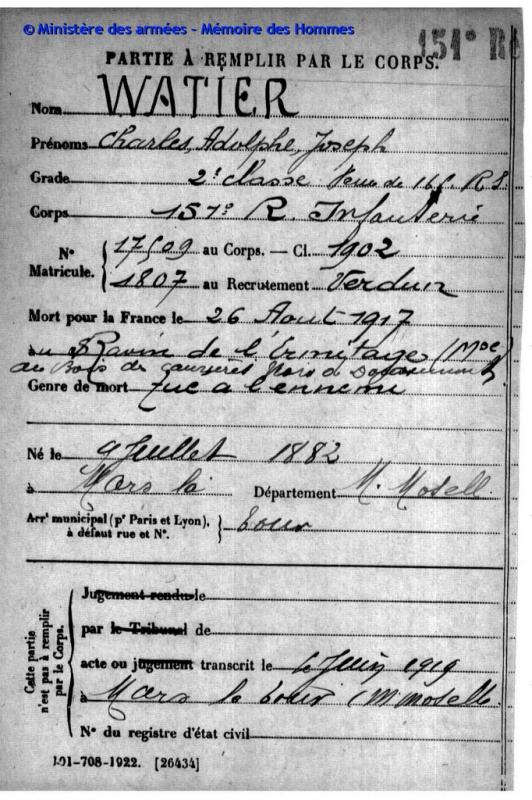 © Ministère des armées - Mémoire des Hommes
151e RI
PARTIE À REMPLIR PAR LE CORPS.
Nom WATIER
Prénoms Charles, Adolphe, Joseph
Grade 2e Classe Venu de 165 R.I.
Corps 151e R. Infanterie
N° Matricule. 17509 au Corps. — Cl. 1902
1807 au Recrutement Verdun
Mort pour la France le 26 Aout 1917
au Ravin de l'Ermitage (Mse)
Genre de mort Tué à l'ennemi
Né le 9 Juillet 1882
à Mars la Département M. Moselle
Arrt municipal (pr Paris et Lyon), à défaut rue et N°. Tour
Cette partie n'est pas à remplir par le Corps.
Jugement rendu le
par le Tribunal de
acte ou jugement transcrit le Juin 1919
à Mars la Tour (M moselle
N° du registre d'état civil
101-708-1922. [26434]